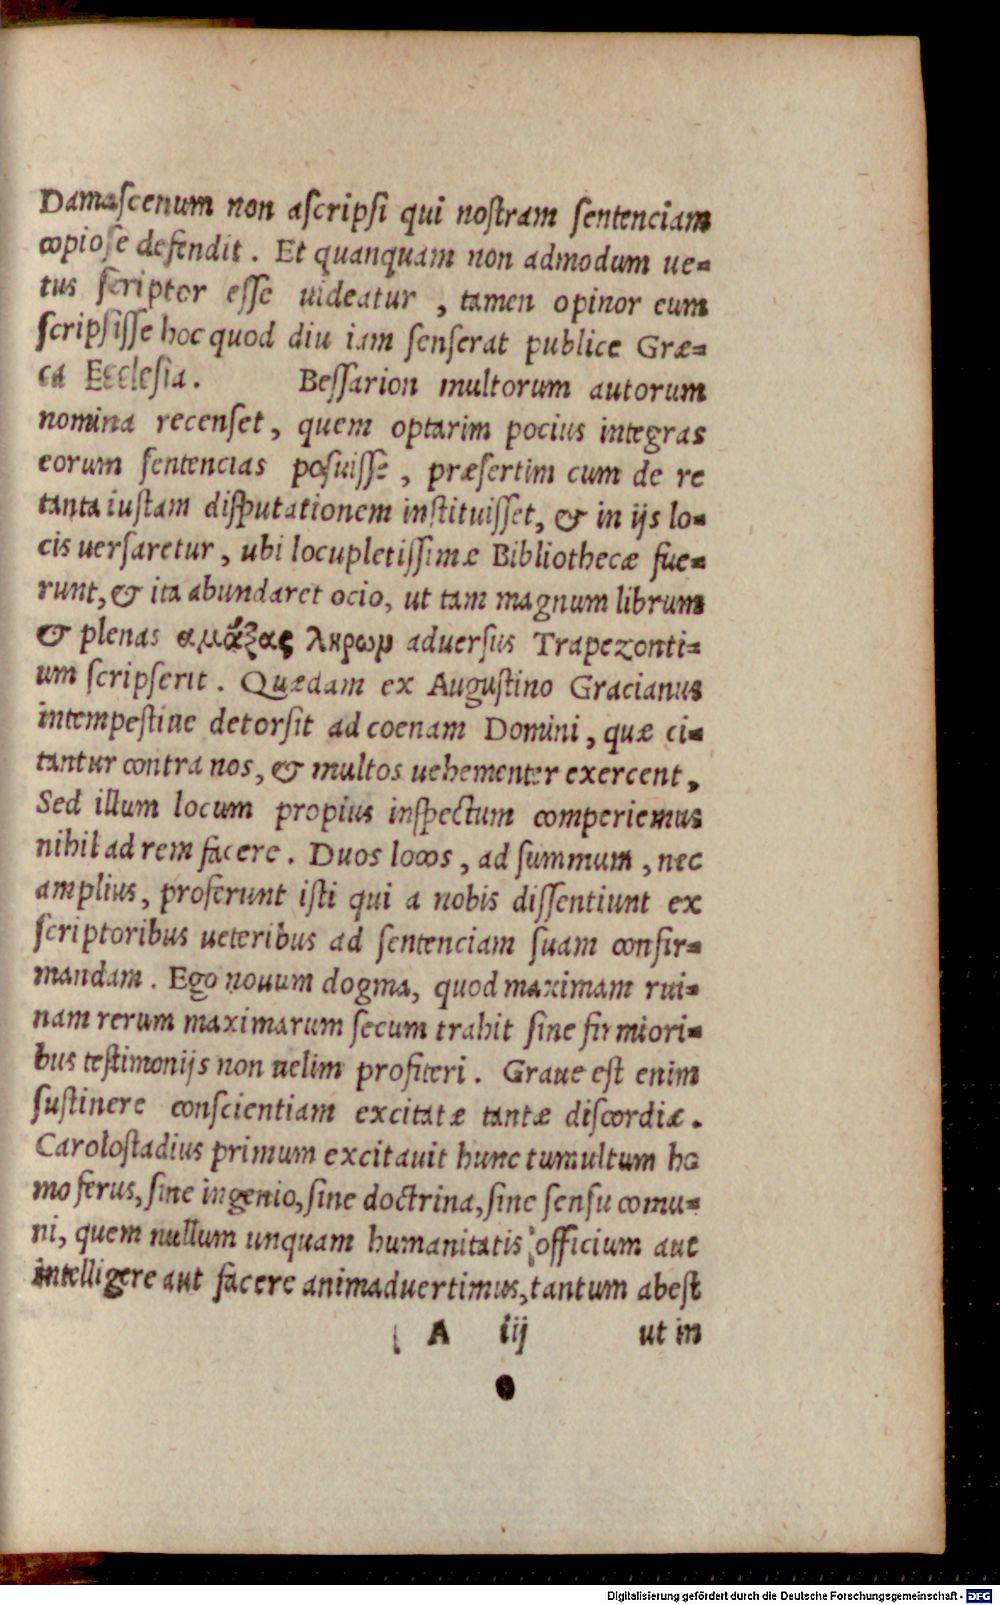 Damaſcenum non aſcripſi qui noſtram ſentenciam
copioſe defendit. Et quanquam non admodum ue-
tus ſcriptor eſſe uideatur, tamen opinor eum
ſcripſiſſe hoc quod diu iam ſenſerat publice Græ-
ca Eccleſia. Beſſarion multorum autorum
nomina recenſet, quem optarim pocius integras
eorum ſentencias poſuiſſe, præſertim cum de re
tanta iuſtam diſputationem inſtituiſſet, & in ijs lo-
cis uerſaretur, ubi locupletiſſimæ Bibliothecæ fue-
runt, & ita abundaret ocio, ut tam magnum librum
& plenas αμάξας λκρωμ aduerſus Trapezonti-
um ſcripſerit. Quædam ex Auguſtino Gracianus
intempeſtiue detorſit ad coenam Domini, quæ ci-
tantur contra nos, & multos uehementer exercent,
Sed illum locum propius inſpectum comperiemus
nihil ad rem facere. Duos locos, ad ſummum, nec
amplius, proferunt iſti qui a nobis diſſentiunt ex
ſcriptoribus ueteribus ad ſentenciam ſuam confir-
mandam. Ego nouum dogma, quod maximam rui-
nam rerum maximarum ſecum trahit ſine firmiori-
bus teſtimonijs non uelim profiteri. Graue eſt enim
ſuſtinere conſcientiam excitatæ tantæ diſcordiæ.
Caroloſtadius primum excitauit hunc tumultum ho
mo ferus, ſine ingenio, ſine doctrina, ſine ſenſu comu-
ni, quem nullum unquam humanitatis officium aut
intelligere aut facere animaduertimus, tantum abeſt
A iij ut in
Digitalisierung gefördert durch die Deutsche Forschungsgemeinschaft - DFG